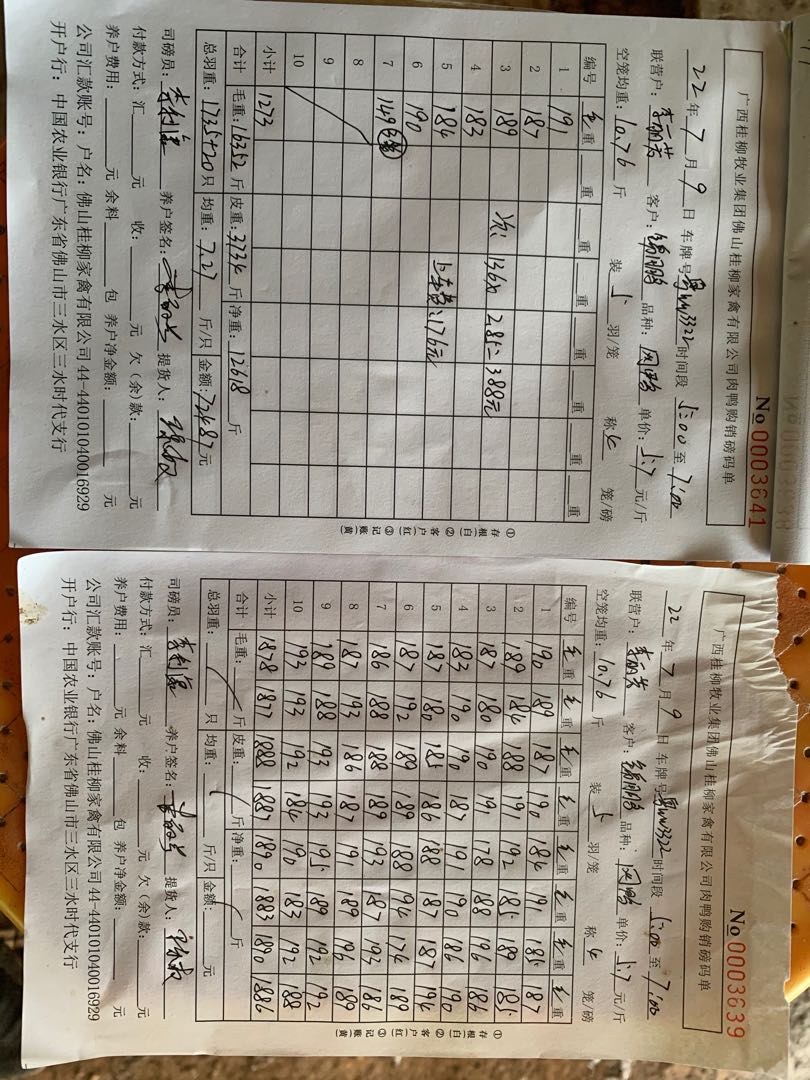 广西桂柳牧业集团佛山桂柳家禽有限公司肉鸭购销磅码单
No 0003641
22年7月9日 车牌号 时间段 5:00 至 7:00
联营户: 客户: 品种: 单价:5.7元/斤
空笼均重:10.76斤 装5羽/笼 称4笼/磅
编号 毛重 重 重 重 重 重 重 重
1 191
2 187
3 189 136只 2.85= 388元
4 183
5 184 上车费:176元
6 190
7 149
8
9
10
小计 1273
合计 毛重:16352斤 皮重:3734斤 净重:12618斤
总羽重:1735+20只 均重:7.27斤/只 金额:72487元
司磅员: 养户签名: 提货人:
付款方式:汇 元 收: 元 欠(余)款: 元
养户费用: 元 余料 包 养户净金额: 元
公司汇款账号:户名:佛山桂柳家禽有限公司 44-440101040016929
开户行:中国农业银行广东省佛山市三水区三水时代支行
①存根(白)②客户(红)③记账(黄)
广西桂柳牧业集团佛山桂柳家禽有限公司肉鸭购销磅码单
No 0003639
22年7月9日 车牌号 时间段 5:00 至 7:00
联营户: 客户: 品种: 单价:5.7元/斤
空笼均重:10.76斤 装5羽/笼 称4笼/磅
编号 毛重 毛重 毛重 毛重 毛重 毛重 毛重 毛重
1 190 189 187 190 184 191 185 187
2 189 184 188 191 192 185 189 185
3 187 180 190 191 178 188 196 186
4 183 190 190 187 191 190 186 190
5 187 180 185 186 188 187 187 194
6 187 192 189 189 188 194 174 189
7 186 188 188 189 193 187 193 186
8 187 193 186 187 191 189 196 189
9 189 188 193 193 195 189 192 192
10 193 193 192 184 190 183 192 188
小计 1878 1877 1888 1887 1890 1883 1890 1886
合计 毛重: 斤 皮重: 斤 净重: 斤
总羽重: 只 均重: 斤/只 金额: 元
司磅员: 养户签名: 提货人:
付款方式:汇 元 收: 元 欠(余)款: 元
养户费用: 元 余料 包 养户净金额: 元
公司汇款账号:户名:佛山桂柳家禽有限公司 44-440101040016929
开户行:中国农业银行广东省佛山市三水区三水时代支行
①存根(白)②客户(红)③记账(黄)